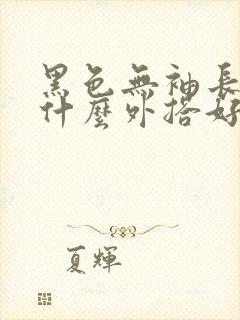 黑色無袖長
什麼外搭好
夏輝